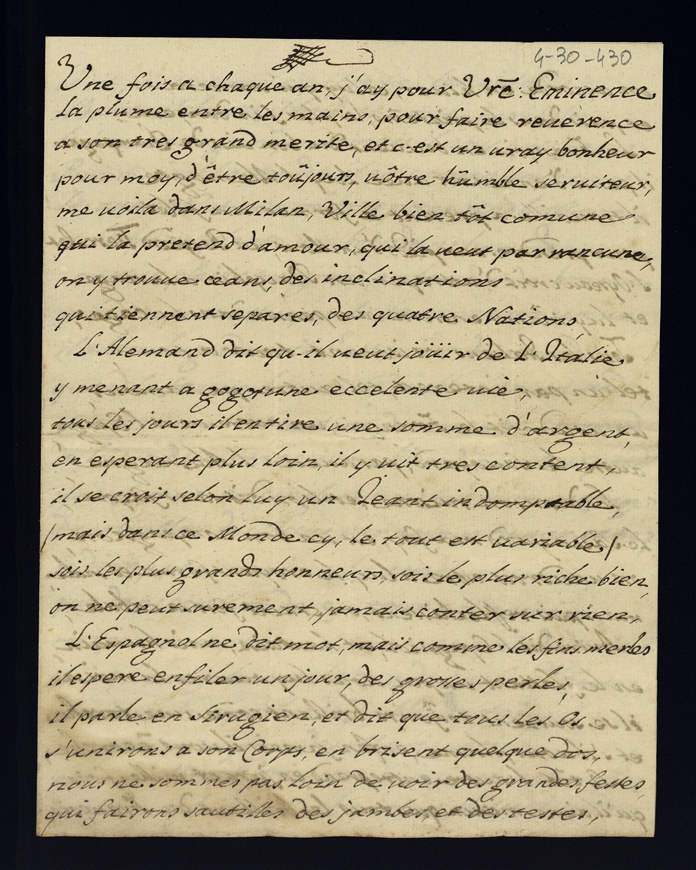 4-30-430
Une fois a chaque an, j'ay pour Vrē: Eminence
la plume entre les mains, pour faire reuerence
a son tres grand merite, et c'est un uray bonheur
pour moy, d'être toûjours, uôtre hûmble seruiteur,
me uoila dans Milan, Ville bien tôt comune
qui la pretend d'amour, qui la ueut par rancune,
on y trouue ceans, des inclinations
qui tiennent separés, des quatre Nations,
L'Alemand dit qu-il ueut joüir de L'Italie
y menant a gogo une eccelente uie,
tous les jours il en tire une somme d'argent,
en esperant plus loin, il y uit tres content,
il se croit selon luy un Geant indomptable,
(mais dans ce Monde cy, le tout est uariable)
sois les plus grands honneurs, sois le plus riche bien,
on ne peut surement, jamais conter sur rien,
L'Espagnol ne dit mot, mais comme les fins merles
il espere enfiler un jour, des grosses perles,
il parle en Strugien, et dit que tous les Os
s'unirons a son Corps, en brisent quelque dos,
nous ne sommes pas loin de uoir des grandes festes,
qui fairons sautilles des jambes, et des testes,